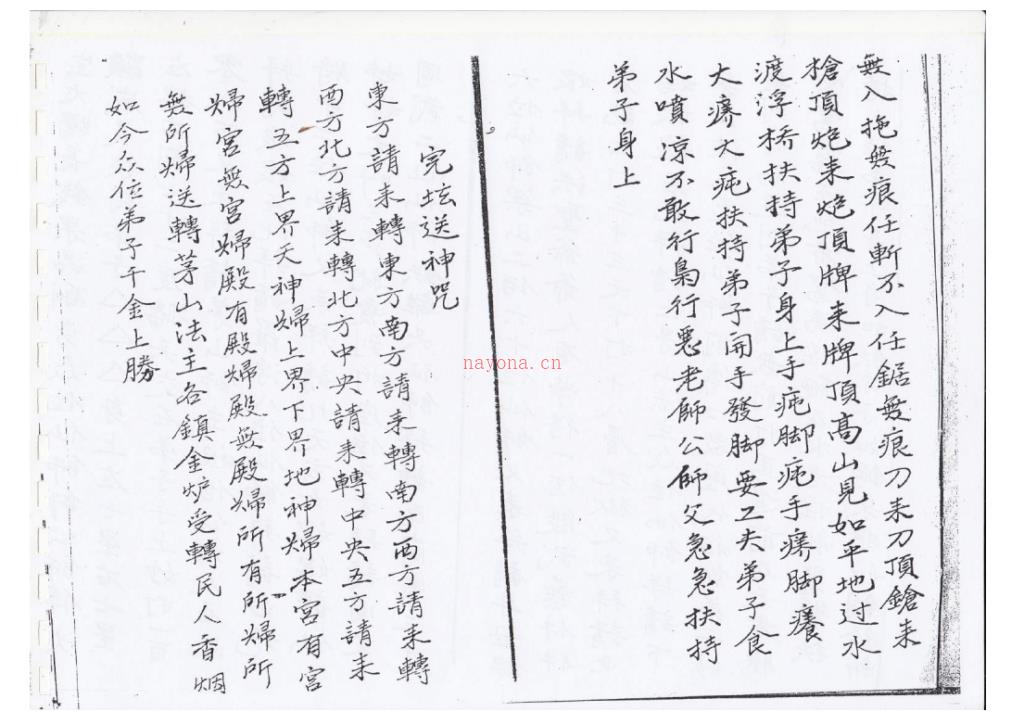 無入拖無痕任斬不入任鋸無痕刀来刀頂鎗来
槍頂炮来炮頂牌来牌頂高山見如平地过水
渡浮桥扶持弟子身上手疪脚疪手癢脚癢
大癢大疪扶持弟子開手發脚要工夫弟子食
水噴凉不敢行梟行惡老師公師父急急扶持
弟子身上
完坛送神咒
東方請来轉東方南方請来轉南方西方請来轉
西方北方請来轉北方中央請来轉中央五方請来
轉五方上界天神婦上界下界地神婦本宮有宮
婦宮無宮婦殿有殿婦殿無殿婦所有所婦所
無所婦送轉茅山法主各鎮金炉受轉民人香烟
如今众位弟子千金上勝
nayona.cn